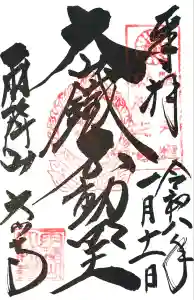 奉拝
令和八年
一月十一日
大鐵不動明王
雨降山
大山寺